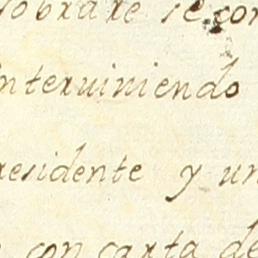 sobrare se con
interuiniendo
residente y un
con carta de